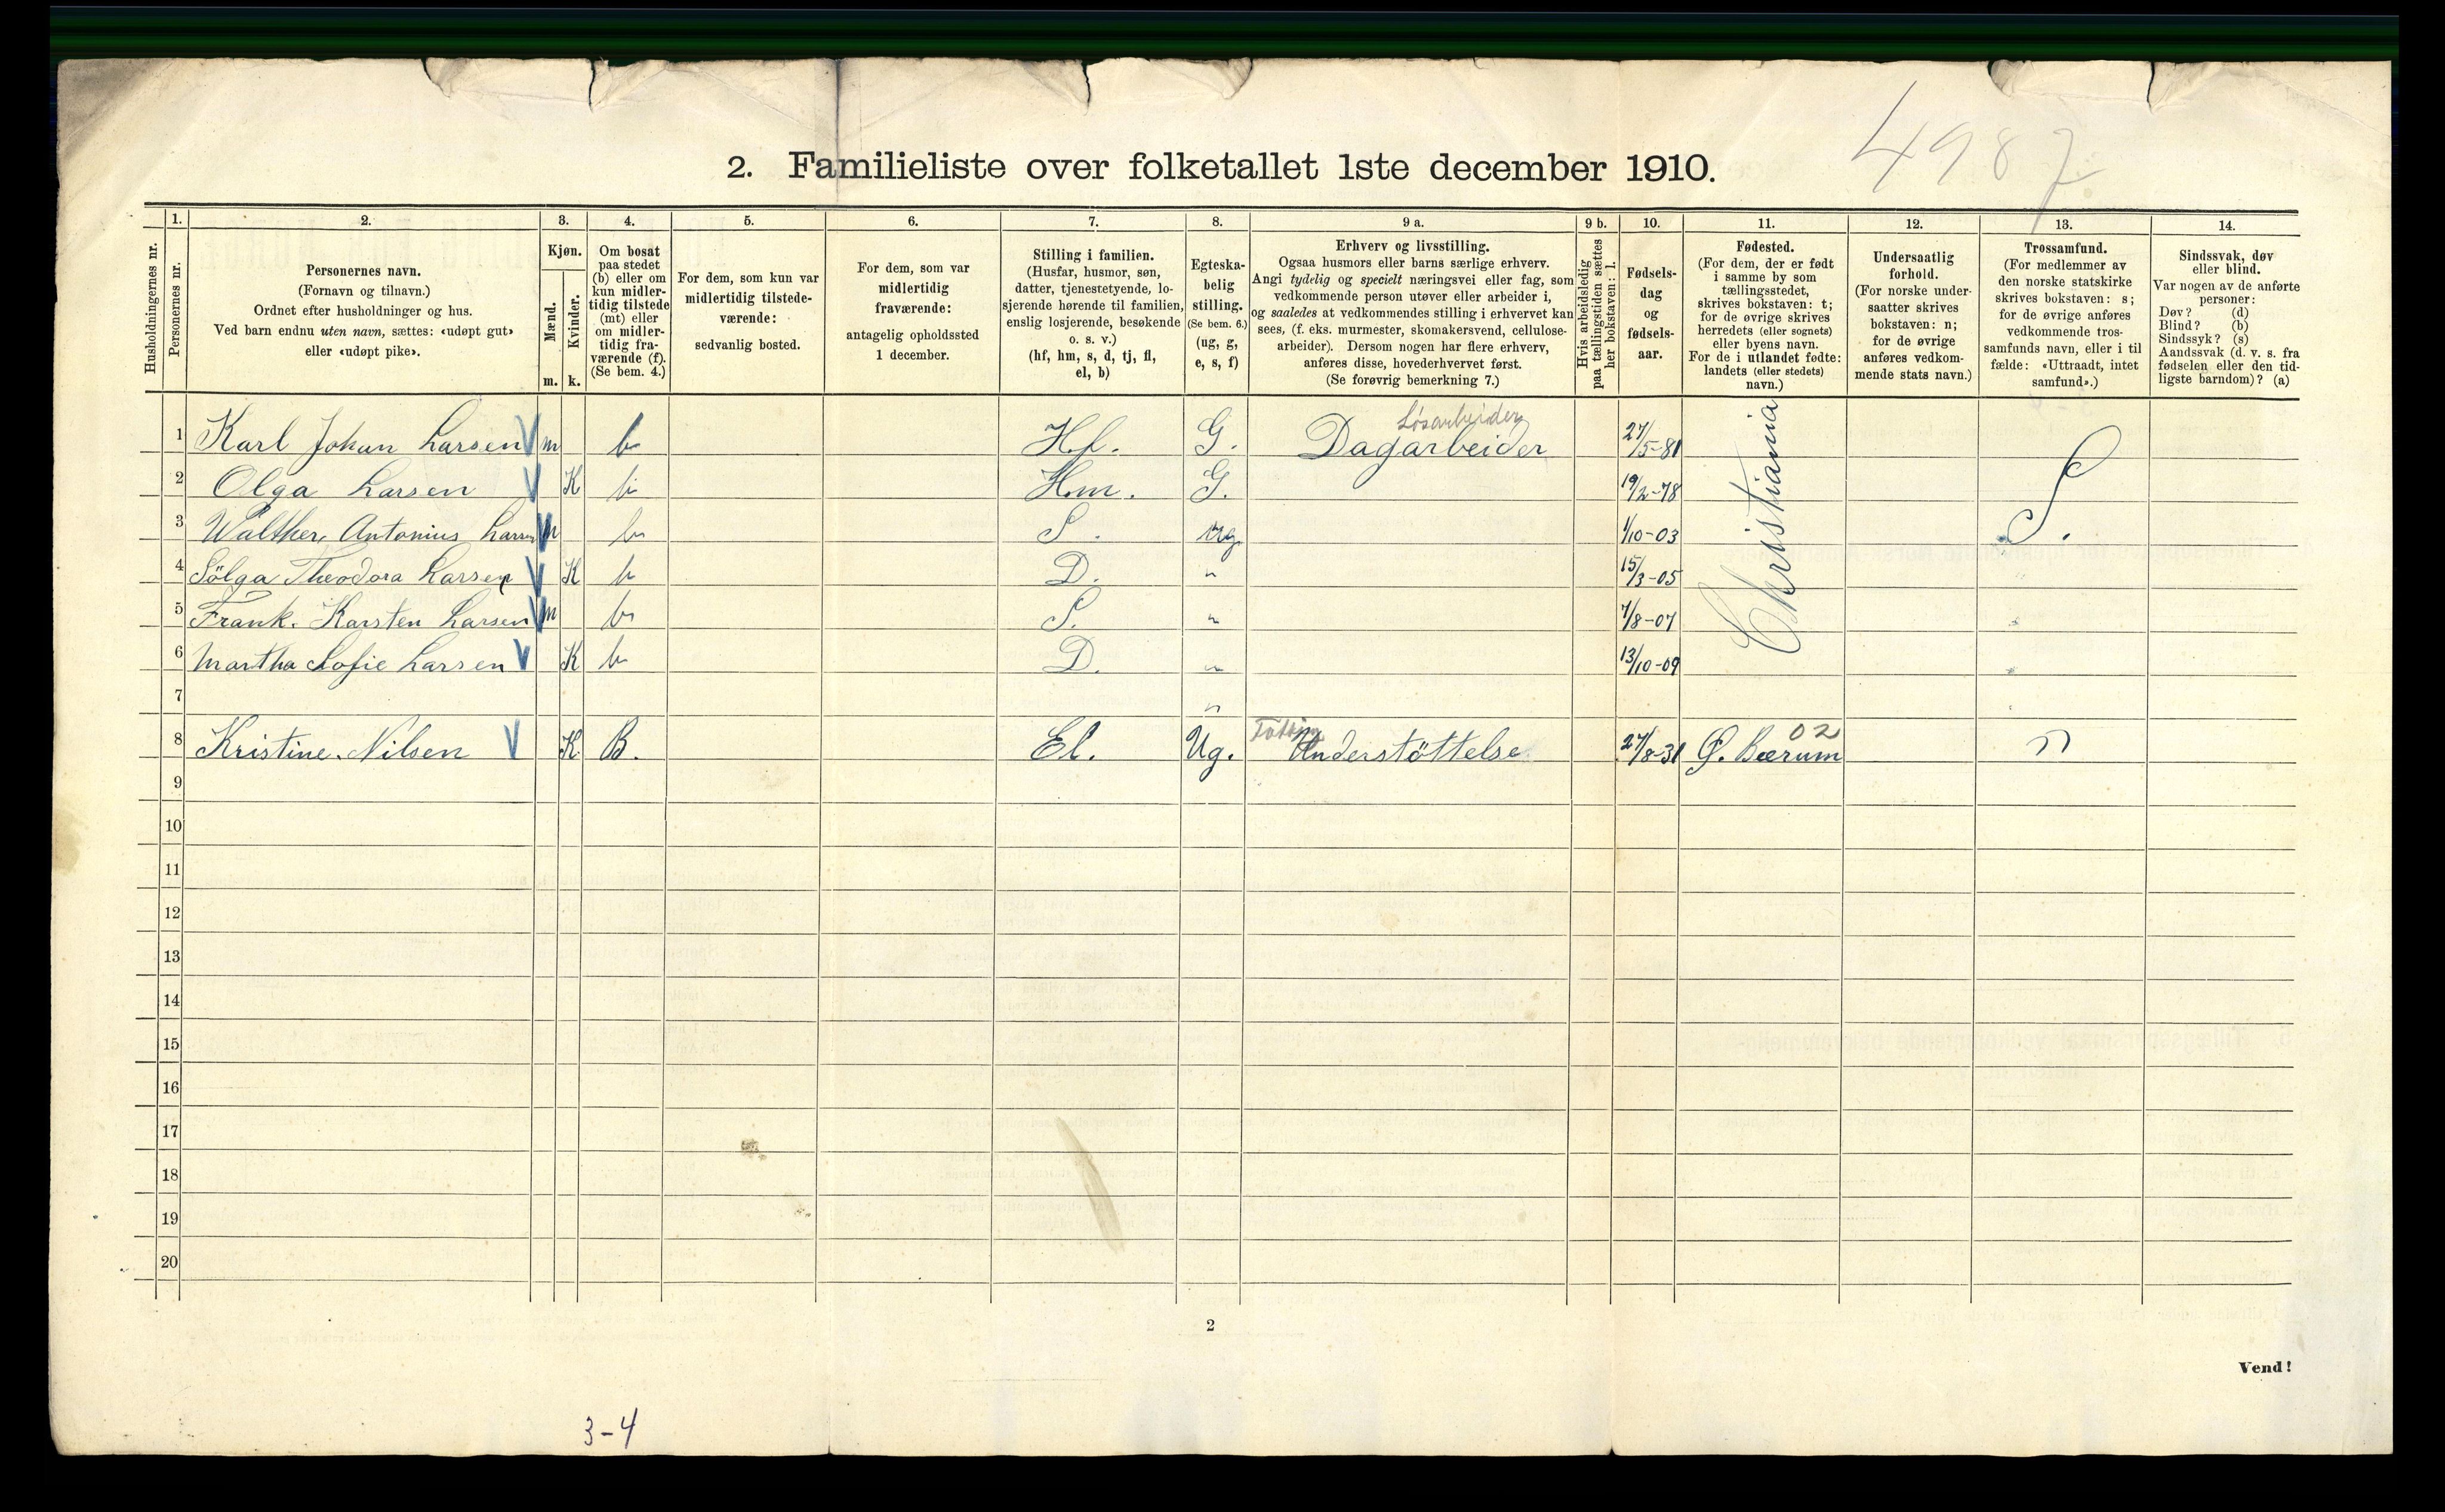 4987
2. Familieliste over folketallet 1ste december 1910.
Husholdningernes nr.
1.
Personernes nr.
2.
Personernes navn.
(Fornavn og tilnavn.)
Ordnet efter husholdninger og hus.
Ved barn endnu uten navn, sættes: «udøpt gut»
eller «udøpt pike».
3.
Kjøn.
Mænd.
Kvinder.
m. k.
4.
Om bosat
paa stedet
(b) eller om
kun midler-
tidig tilstede
(mt) eller
om midler-
tidig fra-
værende (f).
(Se bem. 4.)
5.
For dem, som kun var
midlertidig tilstede-
værende:
sedvanlig bosted.
6.
For dem, som var
midlertidig
fraværende:
antagelig opholdssted
1 december.
7.
Stilling i familien.
(Husfar, husmor, søn,
datter, tjenestetyende, lo-
sjerende hørende til familien,
enslig losjerende, besøkende
o. s. v.)
(hf, hm, s, d, tj, fl,
el, b)
8.
Egteska-
belig
stilling.
(Se bem. 6.)
(ug, g,
e, s, f)
9 a.
Erhverv og livsstilling.
Ogsaa husmors eller barns særlige erhverv.
Angi tydelig og specielt næringsvei eller fag, som
vedkommende person utøver eller arbeider i,
og saaledes at vedkommendes stilling i erhvervet kan
sees, (f. eks. murmester, skomakersvend, cellulose-
arbeider). Dersom nogen har flere erhverv,
anføres disse, hovederhvervet først.
(Se forøvrig bemerkning 7.)
9 b.
Hvis arbeidsledig
paa tællingstiden sættes
her bokstaven: l.
10.
Fødsels-
dag
og
fødsels-
aar.
11.
Fødested.
(For dem, der er født
i samme by som
tællingsstedet,
skrives bokstaven: t;
for de øvrige skrives
herredets (eller sognets)
eller byens navn.
For de i utlandet fødte:
landets (eller stedets)
navn.)
12.
Undersaatlig
forhold.
(For norske under-
saatter skrives
bokstaven: n;
for de øvrige
anføres vedkom-
mende stats navn.)
13.
Trossamfund.
(For medlemmer av
den norske statskirke
skrives bokstaven: s;
for de øvrige anføres
vedkommende tros-
samfunds navn, eller i til
fælde: «Uttraadt, intet
samfund».)
14.
Sindssvak, døv
eller blind.
Var nogen av de anførte
personer:
Døv? (d)
Blind? (b)
Sindssyk? (s)
Aandssvak (d. v. s. fra
fødselen eller den tid-
ligste barndom)? (a)
Løsarbeider
1 Karl Johan Larsen V m b Hf. G. Dagarbeider 27/5-81 Christiania S.
2 Olga Larsen V K b Hm. G. 19/2-78
3 Walther Antonius Larsen V m b S. ug. 1/10-03
4 Sölga Theodora Larsen V K b D. " 15/3-05
5 Frank. Karsten Larsen V m b S. " 7/8-07
6 Martha Sofie Larsen V K b D. " 13/10-09
7 "
8 Kristine. Nilsen V K B. El. Ug. Understöttelse 27/8-31 Ø. Bærum 02
9
10
11
12
13
14
15
16
17
18
19
20
2
Vend!
3-4